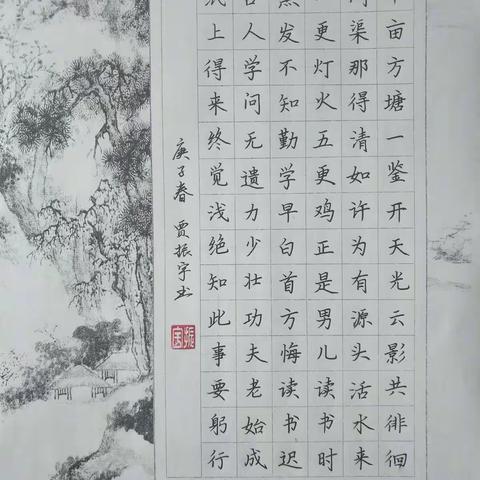 亩方塘一鉴开天光云影共徘徊
渠那得清如许为有源头活水来
更灯火五更鸡正是男儿读书时
发不知勤学早白首方悔读书迟
人学问无遗力少壮功夫老始成
上得来终觉浅绝知此事要躬行
庚子春 贾振宇书
振宇